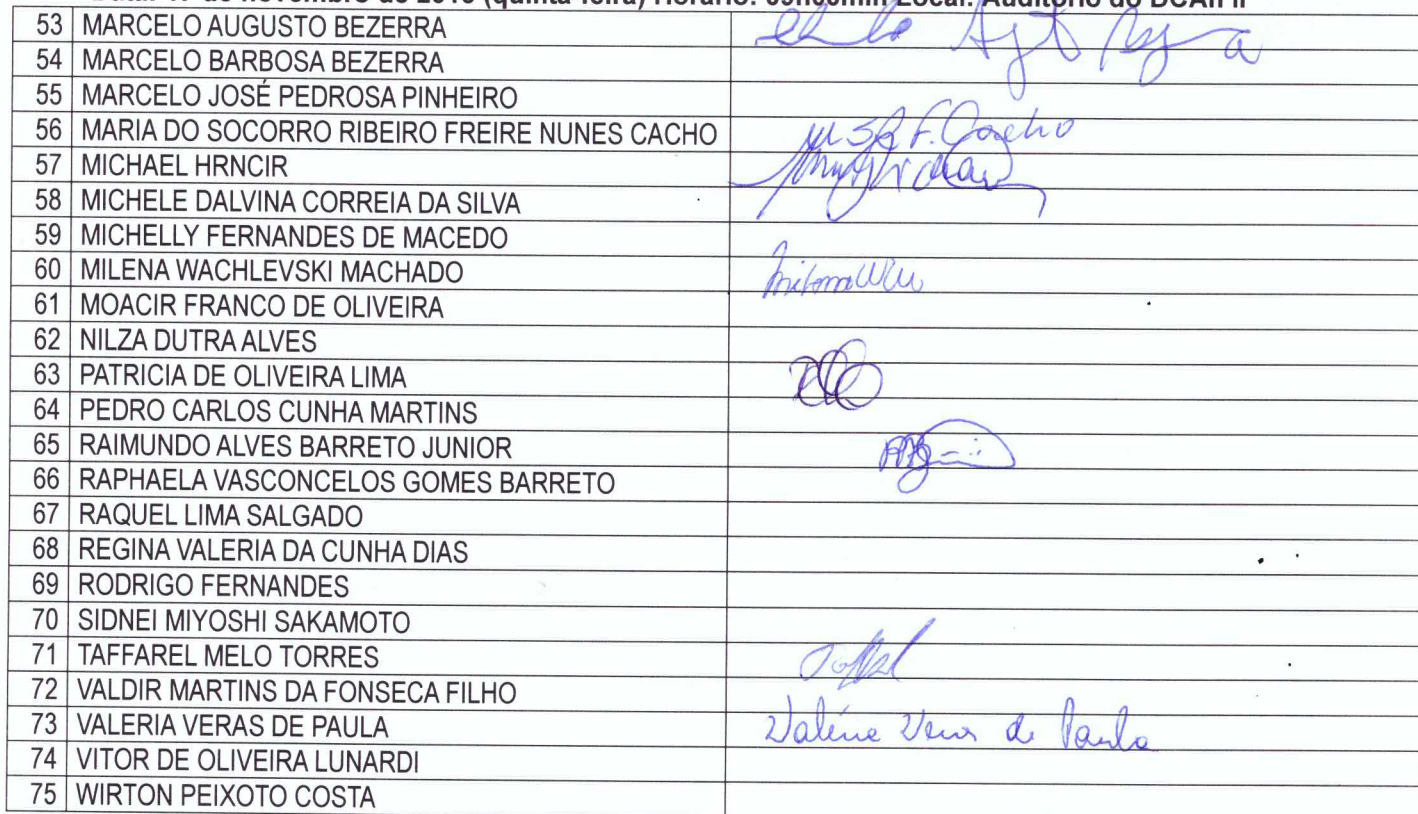 de novembro de (quinta-feira) Horário: 09h00min Local: Auditório do DCAn II
53 MARCELO AUGUSTO BEZERRA
54 MARCELO BARBOSA BEZERRA
55 MARCELO JOSÉ PEDROSA PINHEIRO
56 MARIA DO SOCORRO RIBEIRO FREIRE NUNES CACHO
57 MICHAEL HRNCIR
58 MICHELE DALVINA CORREIA DA SILVA
59 MICHELLY FERNANDES DE MACEDO
60 MILENA WACHLEVSKI MACHADO
61 MOACIR FRANCO DE OLIVEIRA
62 NILZA DUTRA ALVES
63 PATRICIA DE OLIVEIRA LIMA
64 PEDRO CARLOS CUNHA MARTINS
65 RAIMUNDO ALVES BARRETO JUNIOR
66 RAPHAELA VASCONCELOS GOMES BARRETO
67 RAQUEL LIMA SALGADO
68 REGINA VALERIA DA CUNHA DIAS
69 RODRIGO FERNANDES
70 SIDNEI MIYOSHI SAKAMOTO
71 TAFFAREL MELO TORRES
72 VALDIR MARTINS DA FONSECA FILHO
73 VALERIA VERAS DE PAULA Valéria Veras de Paula
74 VITOR DE OLIVEIRA LUNARDI
75 WIRTON PEIXOTO COSTA